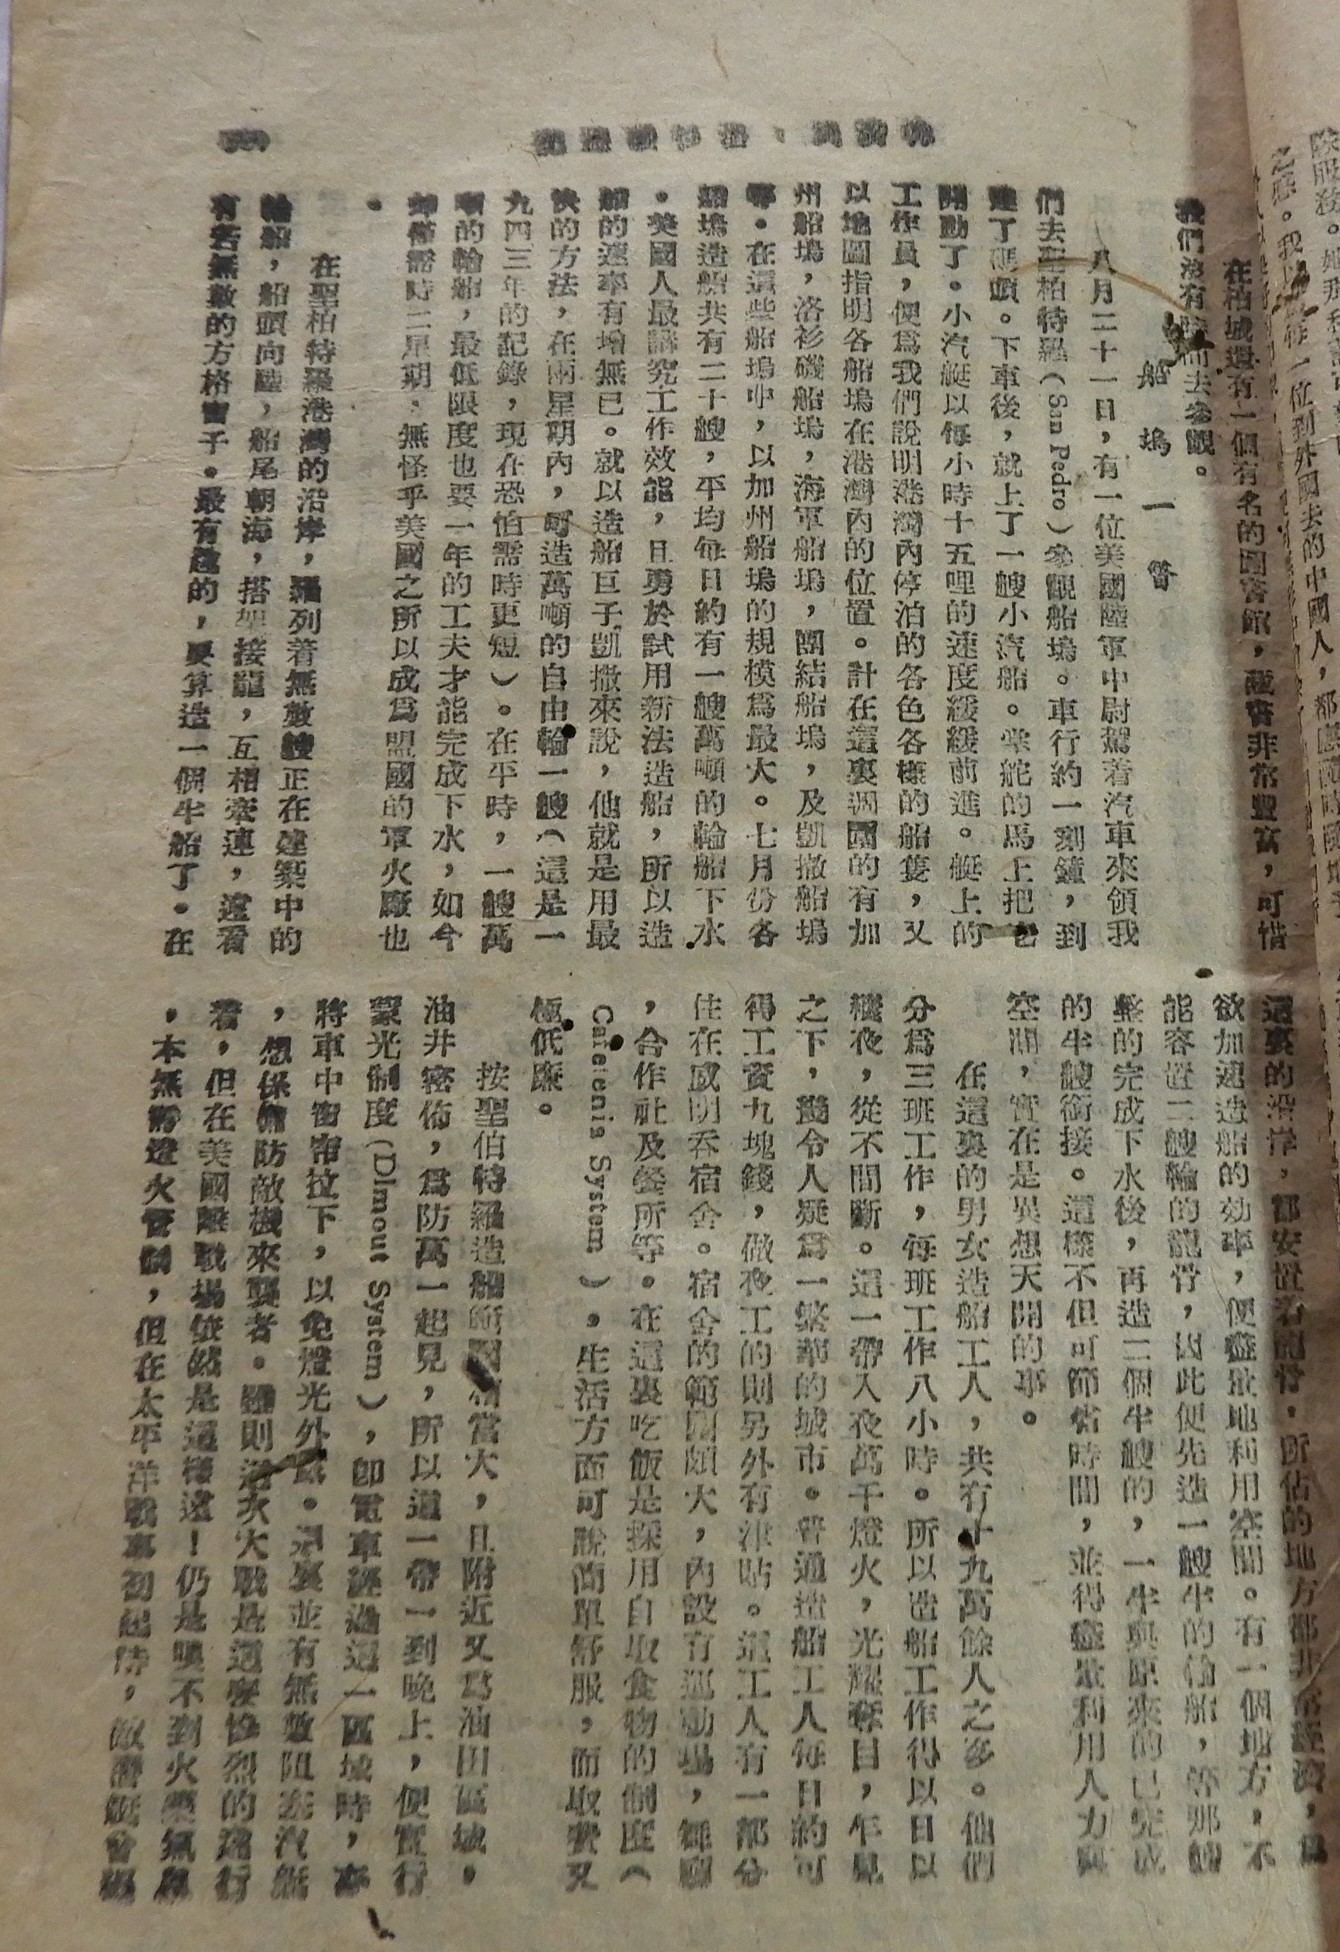 在柏城還有一個有名的圖書館，藏書非常豐富，可惜
我們沒有時間去參觀。
船塢一瞥
八月二十一日，有一位美國陸軍中尉駕着汽車來領我
們去聖柏特羅（San Pedro）參觀船塢。車行約一刻鐘，到
達了碼頭。下車後，就上了一艘小汽船。掌舵的馬上把它
開動了。小汽艇以每小時十五哩的速度緩緩前進。艇上的
工作員，便爲我們說明港灣內停泊的各色各樣的船隻，又
以地圖指明各船塢在港灣內的位置。計在這裏週圍的有加
州船塢，洛杉磯船塢，海軍船塢，團結船塢，及凱撒船塢
等。在這些船塢中，以加州船塢的規模爲最大。七月份各
船塢造船共有二十艘，平均每日約有一艘萬噸的輪船下水
。美國人最講究工作效能，且勇於試用新法造船，所以造
船的速率有增無已。就以造船巨子凱撒來說，他就是用最
快的方法，在兩星期內，可造萬噸的自由輪一艘（這是一
九四三年的記錄，現在恐怕需時更短）。在平時，一艘萬
噸的輪船，最低限度也要一年的工夫才能完成下水，如今
却僅需時二星期，無怪乎美國之所以成爲盟國的軍火廠也
。
在聖柏特羅港灣的沿岸，羅列着無數艘正在建築中的
輪船，船頭向陸，船尾朝海，搭架接龍，互相牽連，遠看
有若無數的方格窗子。最有趣的，要算造一個半船了。在
這裏的沿岸，都安置着龍骨，所佔的地方都非常經濟，爲
欲加速造船的効率，便儘量地利用空間。有一個地方，不
能容置二艘輪的龍骨，因此便先造一艘半的輪船，等那艘
整的完成下水後，再造二個半艘的，一半與原來的已完成
的半艘銜接。這樣不但可節省時間，並得儘量利用人力與
空間，實在是異想天開的事。
在這裏的男女造船工人，共有十九萬餘人之多。他們
分爲三班工作，每班工作八小時。所以造船工作得以日以
繼夜，從不間斷。這一帶入夜萬千燈火，光耀奪目，乍見
之下，幾令人疑爲一繁華的城市。普通造船工人每日約可
得工資九塊錢，做夜工的則另外有津貼。這工人有一部分
住在威明吞宿舍。宿舍的範圍頗大，內設有運動場，舞廳
，合作社及餐所等。在這裏吃飯是採用自取食物的制度（
Cafetenia System）。生活方面可說簡單舒服，而取費又
極低廉。
按聖伯特羅造船範圍相當大，且附近又爲油田區域，
油井密佈，爲防萬一起見，所以這一帶一到晚上，便實行
蒙光制度（Dimout System），即電車經過這一區域時，亦
將車中窗帘拉下，以免燈光外露。這裏並有無數阻塞汽艇
，想係備防敵機來襲者。雖則這次大戰是這麼慘烈的進行
着，但在美國離戰場依然是這樣遠！仍是嗅不到火藥氣息
，本無需燈火管制，但在太平洋戰事初起時，敵潛艇會